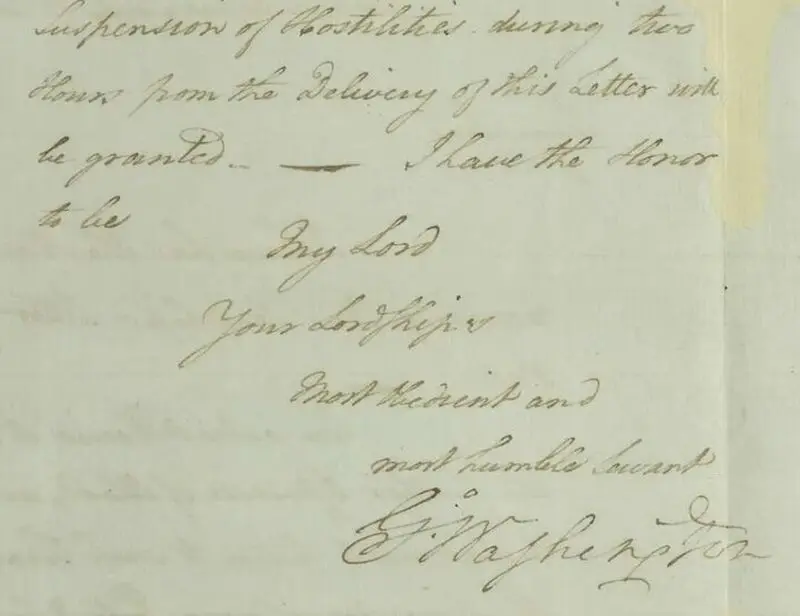 Suspension of Hostilities during two
Hours from the Delivery of this Letter will
be granted. — I have the Honor
to be
My Lord
Your Lordship's
Most Obedient and
most humble Servant
Go. Washington